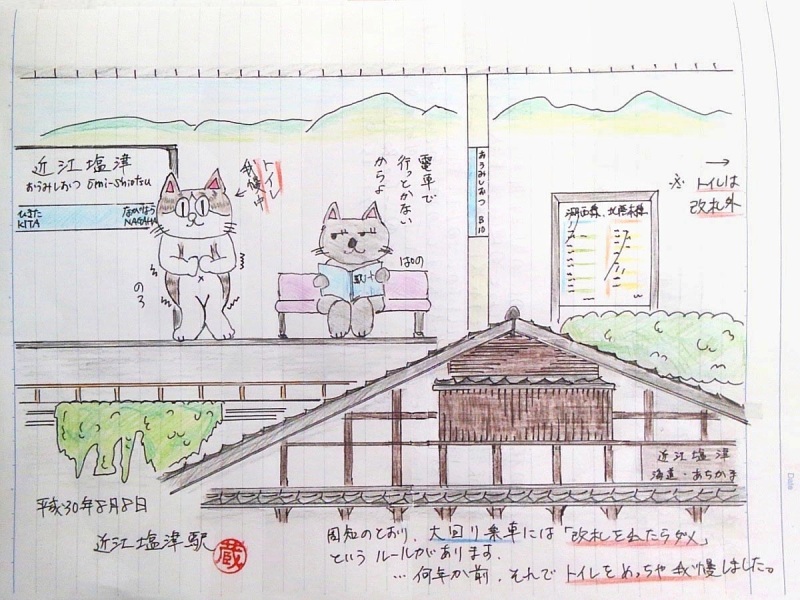 近江塩津
おうみしおつ Ōmi-Shiotsu
KITA
NAGAHA
トイレ
我慢中
のろ
電車で
行っとかない
からよ
ぱの
駅ﾒﾓ
おうみしおつ B10
湖西線、北陸本線
※ トイレは →
改札外
近江塩津
海道・あぢかま
平成30年8月8日
近江塩津駅 蔵
周知のとおり、大回り乗車には「改札を出たらダメ」
というルールがあります。
…何年か前、それでトイレをめっちゃ我慢しました。